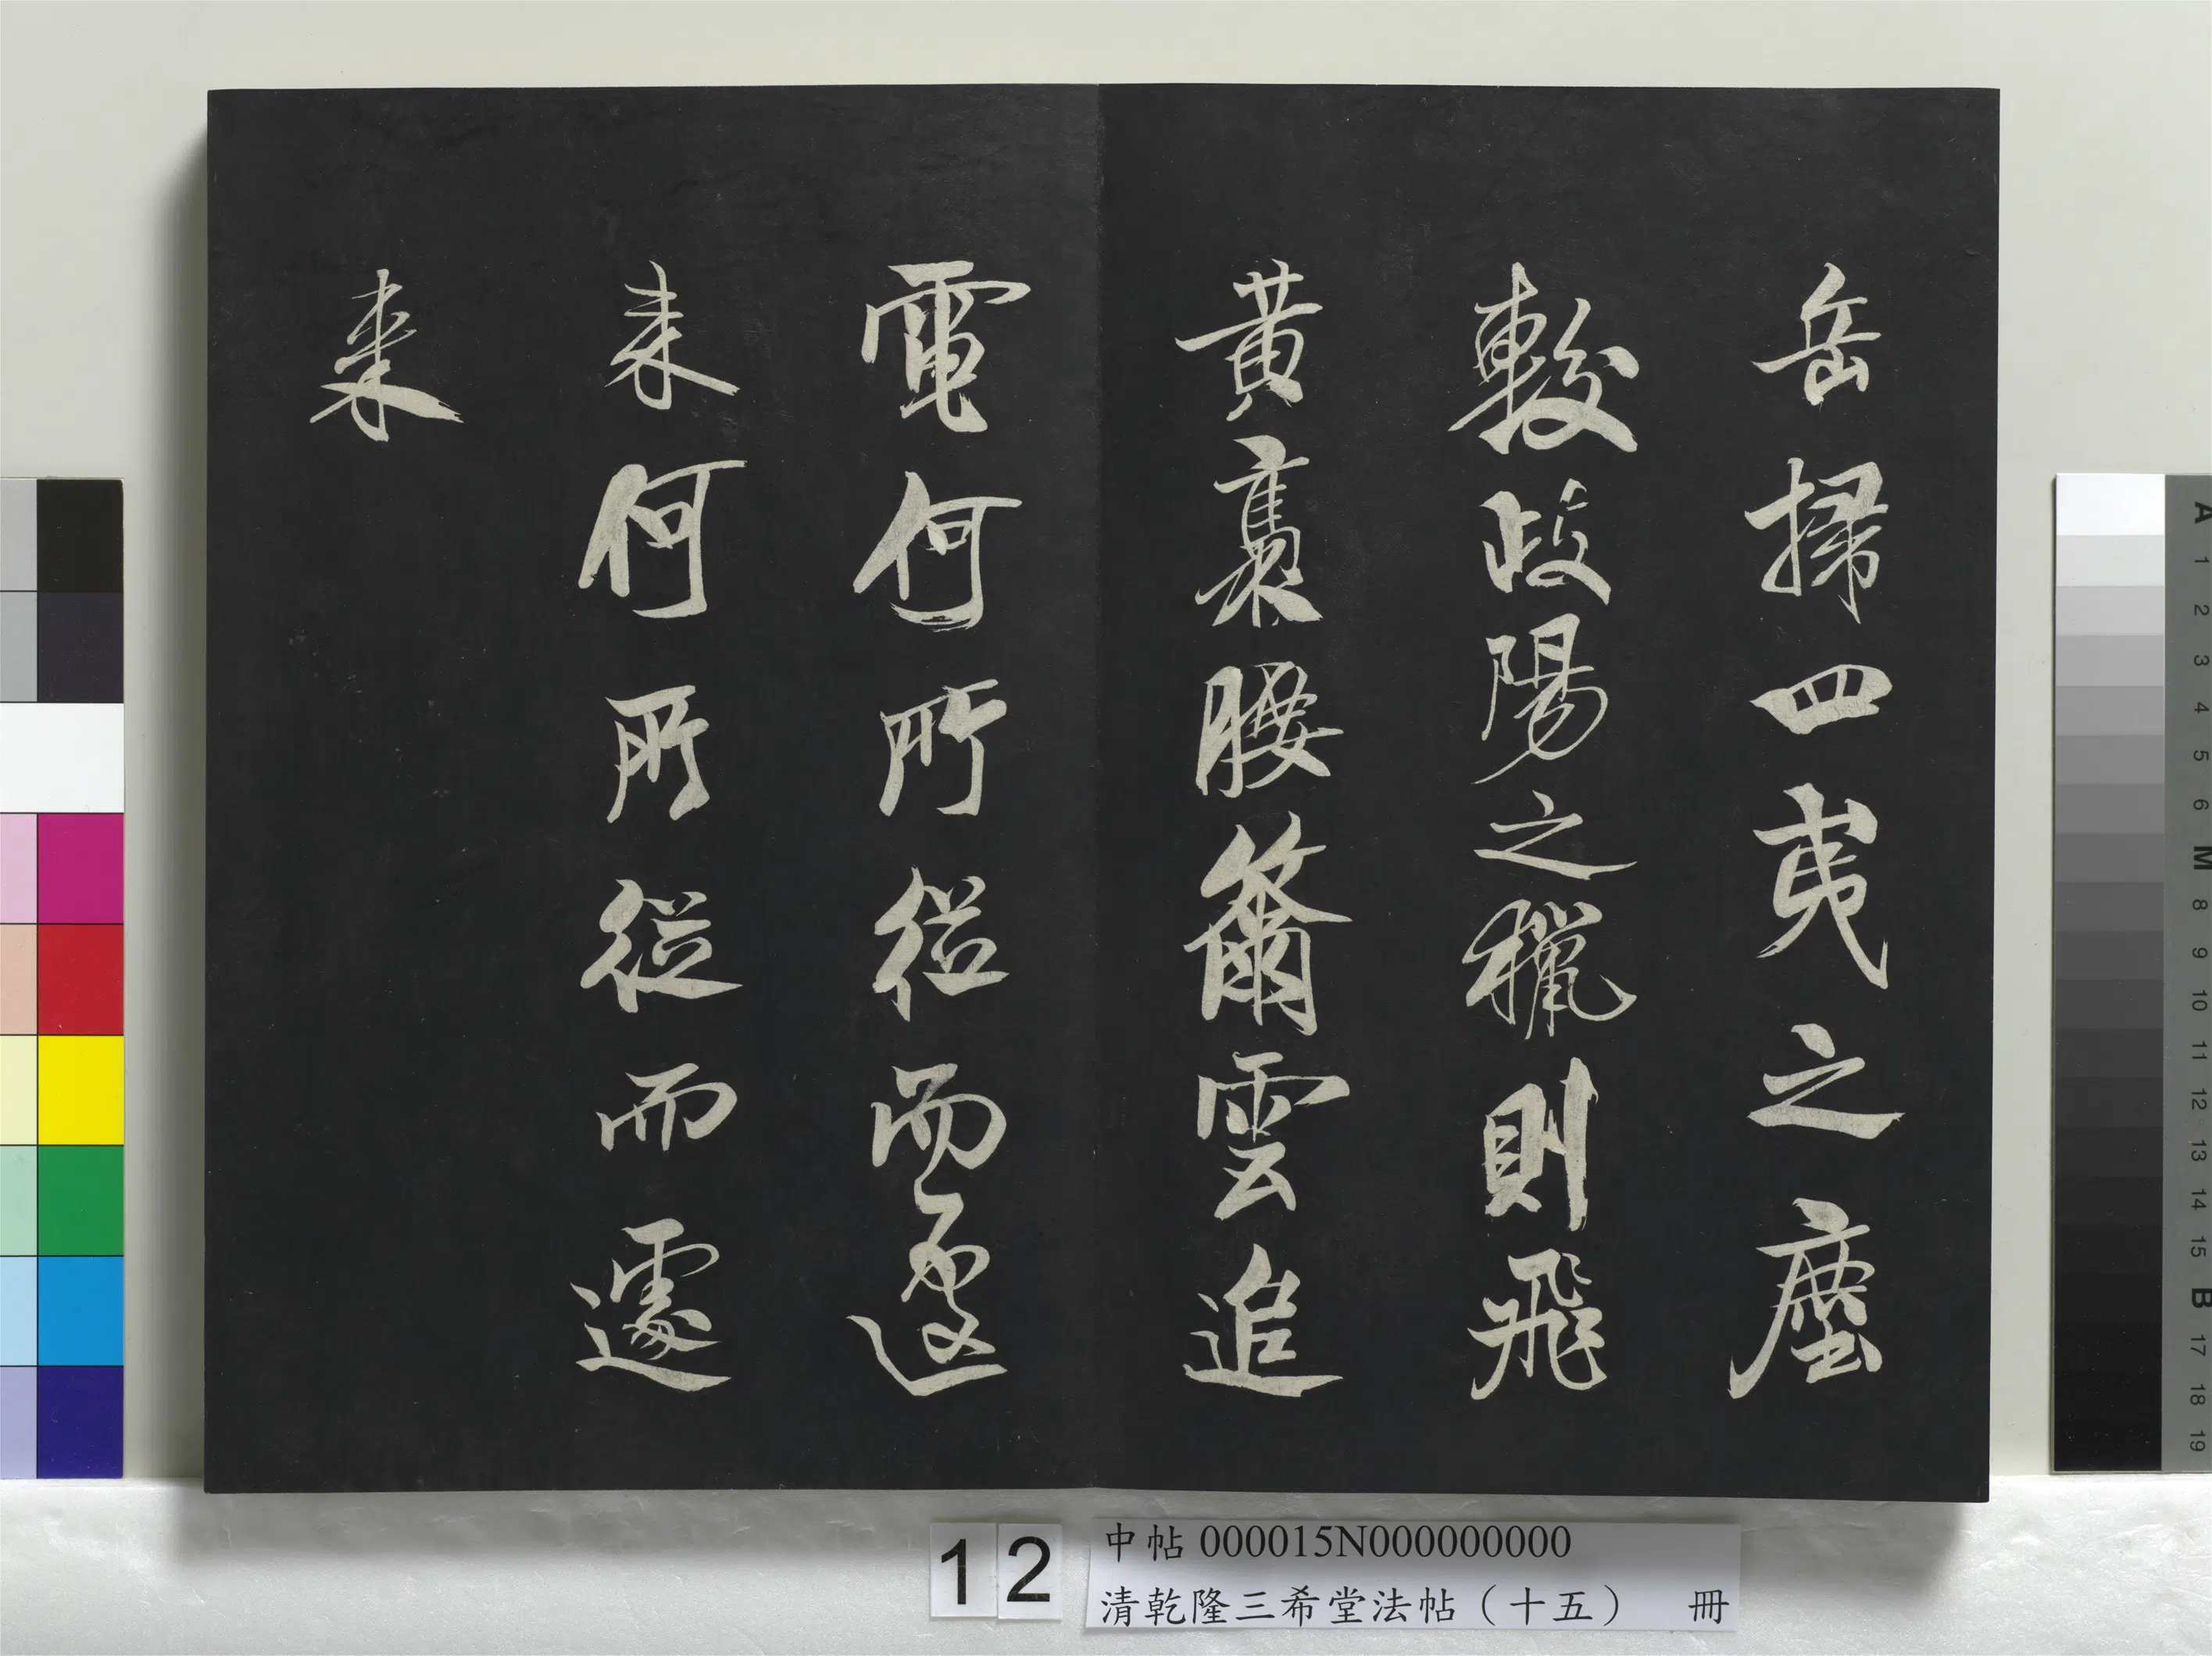 岳掃四夷之塵
較岐陽之獵則飛
黃褭腰籋雲追
電何所從而遽
来何所從而遽
来
12
中帖 000015N000000000
清乾隆三希堂法帖（十五） 冊
A 1 2 3 4 5 6 M 8 9 10 11 12 13 14 15 B 17 18 19